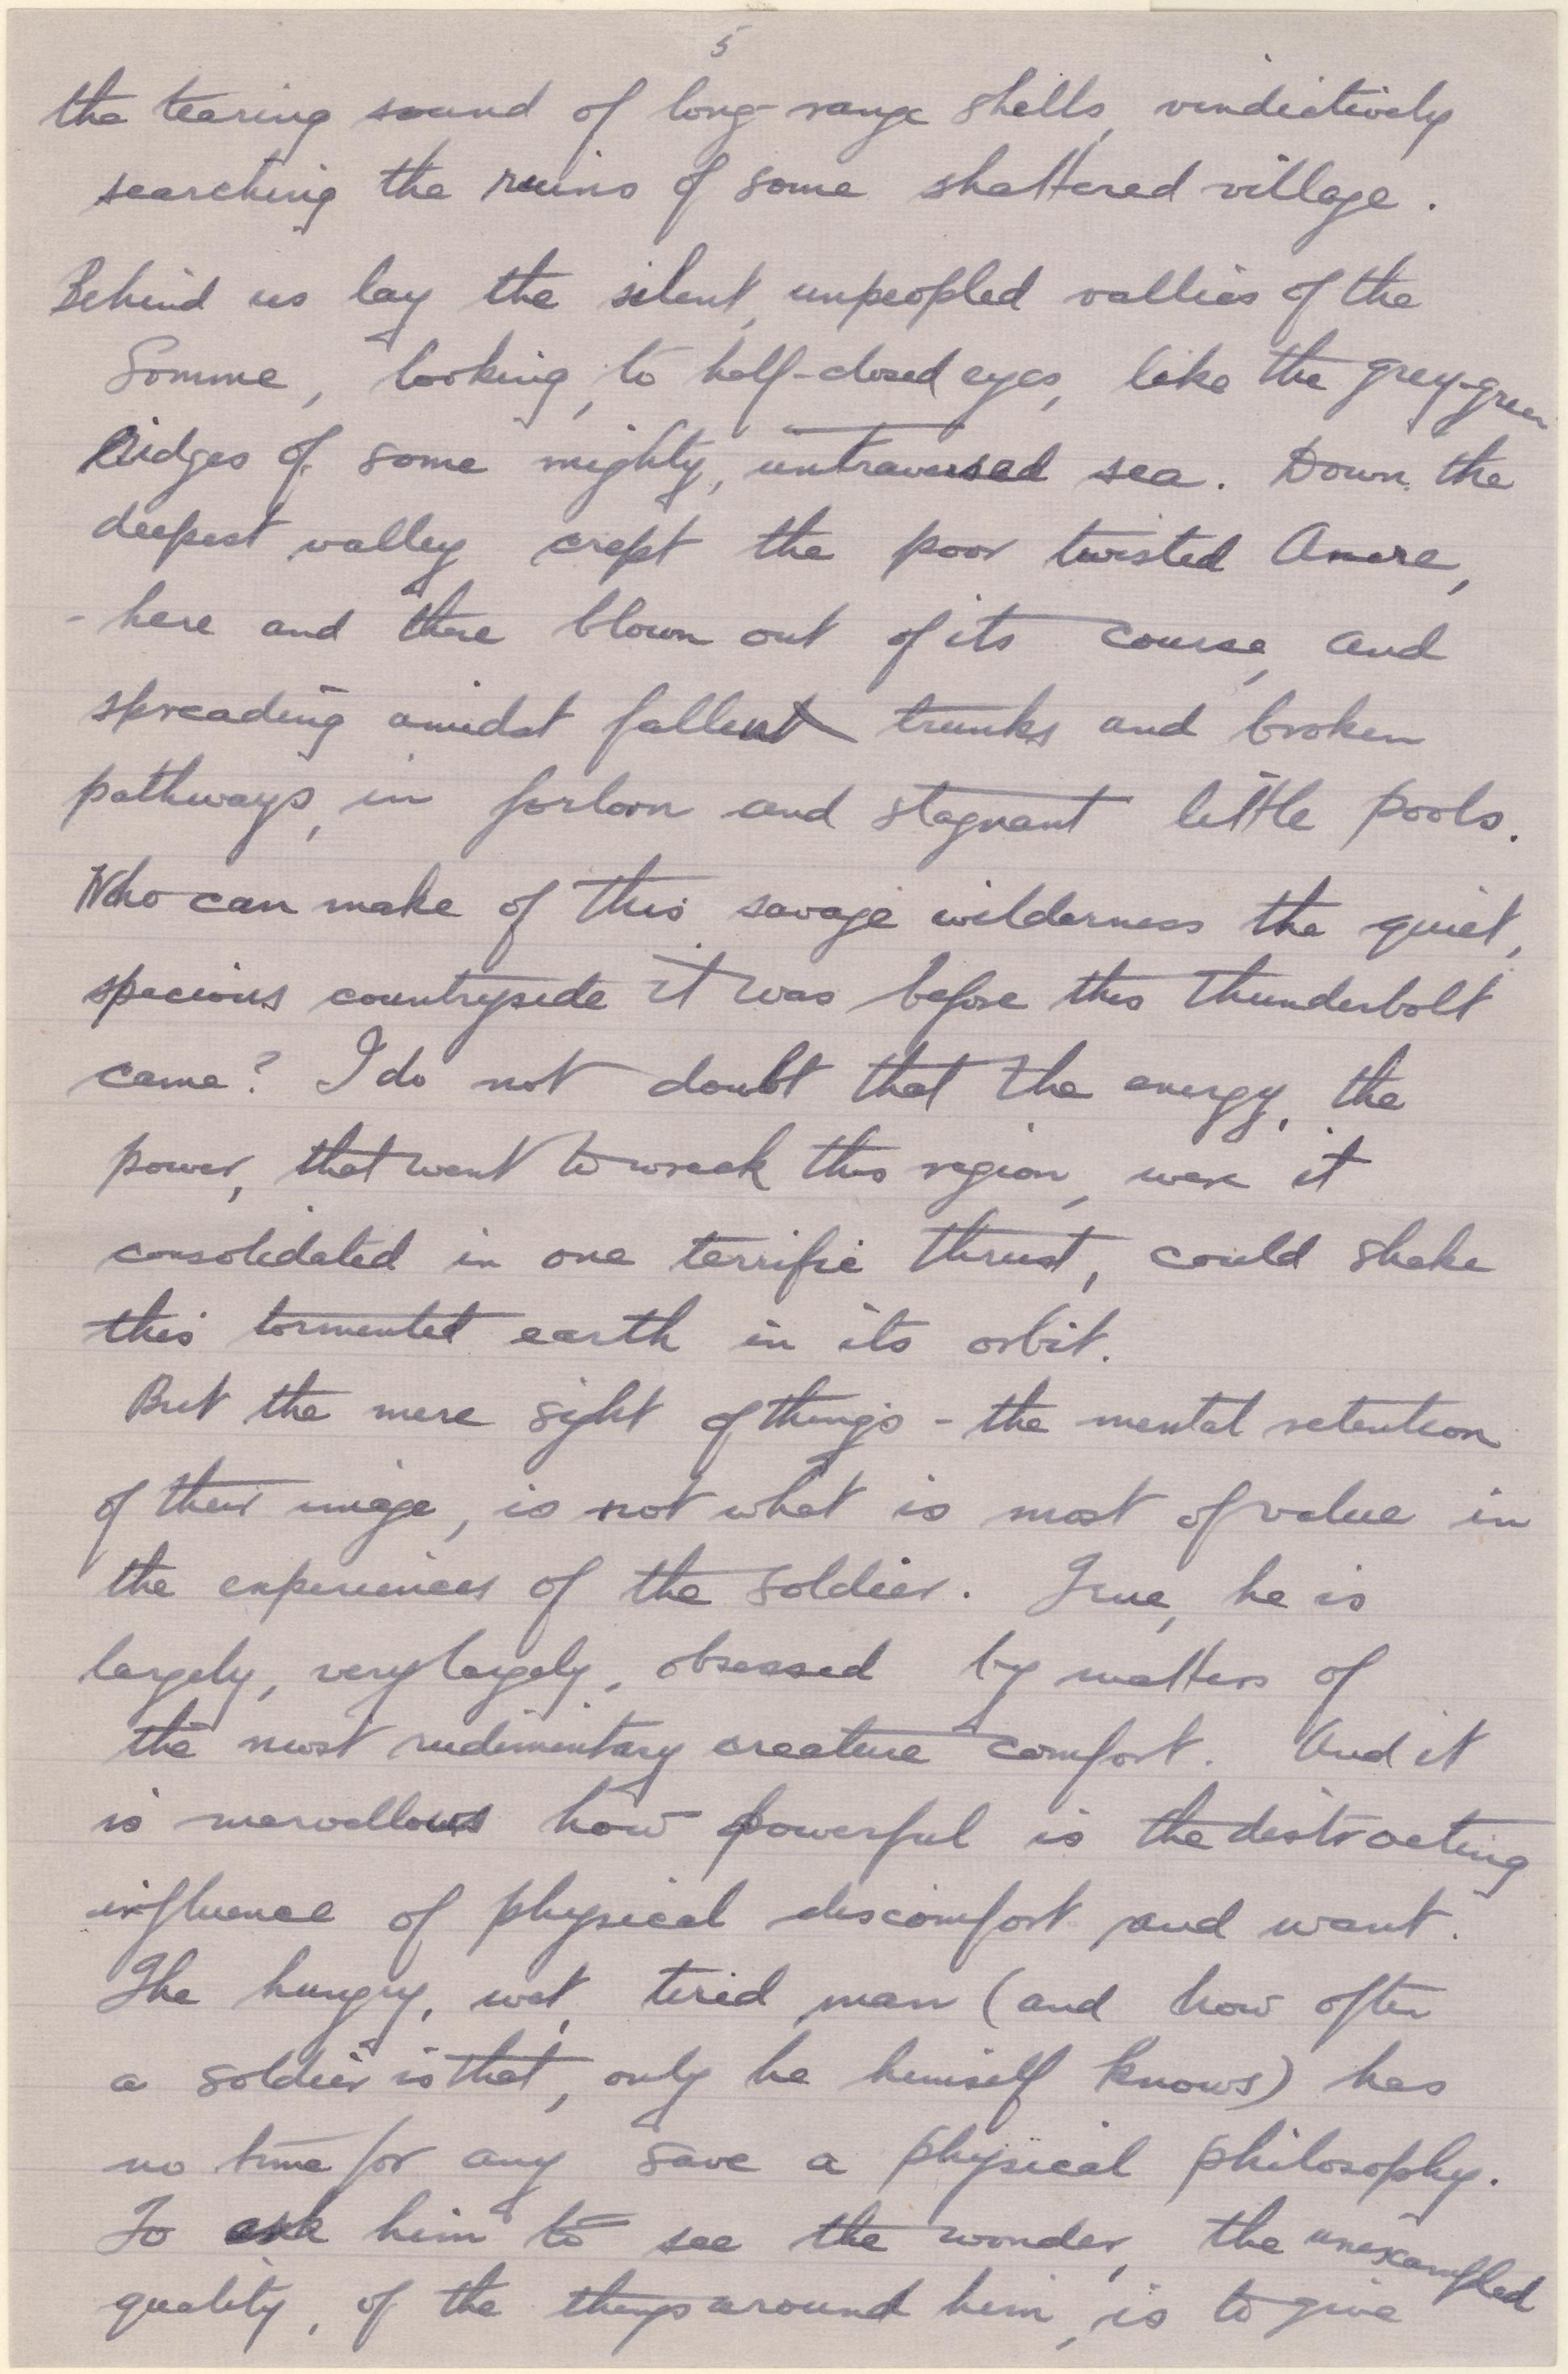 5
the tearing sound of long-range shells, vindictively
searching the ruins of some shattered village.
Behind us lay the silent, unpeopled vallies of the
Somme, looking, to half-closed eyes, like the grey-green
Ridges of some mighty, untraversed sea. Down the
deepest valley crept the poor twisted Ancre,
- here and there blown out of its course, and
spreading amidst fallen trunks and broken
pathways, in forlorn and stagnant little pools.
Who can make of this savage wilderness the quiet,
specious countryside it was before this thunderbolt
came? I do not doubt that the energy, the
power, that went to wreck this region, were it
consolidated in one terrific thrust, could shake
this tormented earth in its orbit.
But the mere sight of things - the mental retention
of their image, is not what is most of value in
the experiences of the soldier. True, he is
largely, very largely, obsessed by matters of
the most rudimentary creature comfort. And it
is marvellous how powerful is the distracting
influence of physical discomfort and want.
The hungry, wet, tired man (and how often
a soldier is that, only he himself knows) has
no time for any save a physical philosophy.
To ask him to see the wonder, the unexampled
quality, of the things around him, is to give